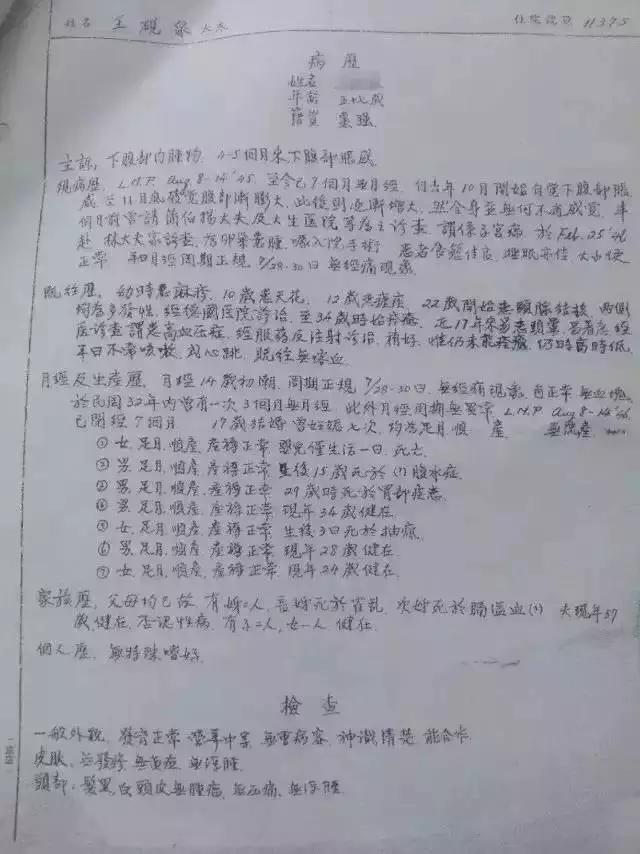 姓名 王硯泉太太 住院號頭 11375
病歷
姓名
年齡 五十七歲
籍貫 無錫
主訴, 下腹部內腫物, 4-5個月來下腹部脹感
現病歷, L.M.P. Aug 8-14'45, 至今已7個月無月經, 但去年10月開始自覺下腹部脹
感至11月底發覺腹部漸膨大, 此後則逐漸增大, 然全身並無何不適感覺, 半
個月前曾請 大夫及人生医院等為之診查, 謂係子宮病, 於 Feb. 25'46
赴 林大夫家診查, 為卵巢囊腫, 囑入院手術 患者食慾佳良, 睡眠亦佳, 大小便
正常 月經周期正規, 7/28-30日 無經痛現象
既往歷, 幼時患麻疹, 10歲患天花, 12歲患瘧疾, 22歲開始患頸腺結核, 兩側
均為多發性, 經德國医院診治, 至34歲時始痊癒, 近17年來常患頭暈, 曾看醫經
診查謂患高血压症, 經服藥及注射診治, 稍好, 惟仍未能痊癒, 仍時高時低,
平日不常咳嗽, 及心跳, 既往無嘔血
月經及生產歷, 月經14歲初潮, 周期正規 7/28-30日, 無經痛現象, 色正常, 無血塊,
於民国32年內曾有一次3個月無月經, 此外月經周期無異常, L.M.P. Aug 8-14'45,
已閉經7個月 17歲結婚曾妊娠七次, 均為足月順產, 無流產
① 女, 足月, 順產, 產褥正常 嬰兒僅生活一日, 死亡
② 男, 足月, 順產, 產褥正常, 生後15歲死於(?)腹水症
③ 男, 足月, 順產, 產褥正常 29歲時死於胃部症患
④ 男, 足月, 順產, 產褥正常 現年34歲健在
⑤ 女, 足月, 順產, 產褥正常, 生後3日死於抽瘋
⑥ 男, 足月, 順產, 產褥正常, 現年28歲健在
⑦ 女, 足月, 順產, 產褥正常, 現年24歲健在
家族歷, 父母均已故, 有姊二人, 長姊死於霍亂, 次姊死於腦溢血(?) 夫現年57
歲健在, 否認性病, 有子二人, 女一人 健在
個人歷, 無特殊嗜好
檢查
一般外觀, 發育正常 營養中等, 無重病容, 神識清楚, 能合作
皮膚, 無發疹 無黃疸 無浮腫
頭部: 髮黑白, 頭皮無腫瘤, 無压痛, 無浮腫